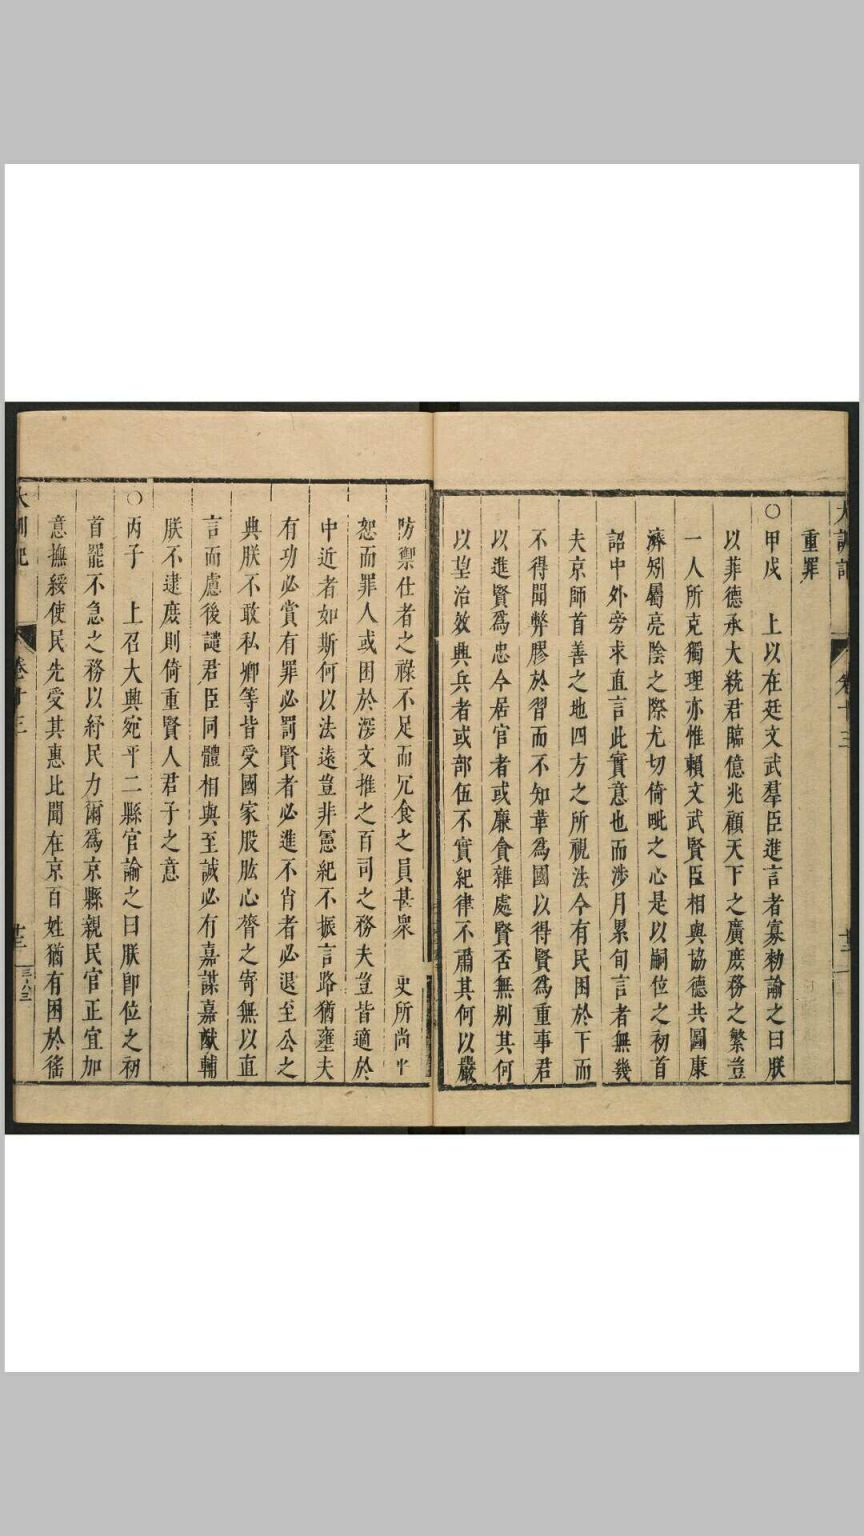 重罪
○甲戌　上以在廷文武羣臣進言者寡勑諭之曰朕
以菲德承大統君臨億兆顧天下之廣庶務之繁豈
一人所克獨理亦惟賴文武賢臣相與協德共圖康
濟矧屬亮陰之際尤切倚毗之心是以嗣位之初首
詔中外旁求直言此實意也而涉月累旬言者無幾
夫京師首善之地四方之所視法今有民困於下而
不得聞弊膠於習而不知革為國以得賢為重事君
以進賢為忠今居官者或廉貪雜處賢否無別其何
以望治效典兵者或部伍不實紀律不肅其何以嚴
防禦仕者之祿不足而冗食之員甚衆　吏所尚
恕而罪人或困於深文推之百司之務夫豈皆適於
中近者如斯何以法遠豈非憲紀不振言路猶壅夫
有功必賞有罪必罰賢者必進不肖者必退至公之
典朕不敢私卿等皆受國家股肱心膂之寄無以直
言而慮後譴君臣同體相與至誠必有嘉謀嘉猷輔
朕不逮庶則倚重賢人君子之意
○丙子　上召大興宛平二縣官諭之曰朕即位之初
首罷不急之務以紓民力爾為京縣親民官正宜加
意撫綏使民先受其惠比聞在京百姓猶有困於徭
卷十三